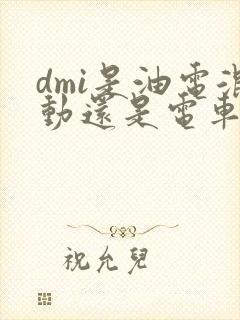 dmi是油電混
動還是電車
祝允兒